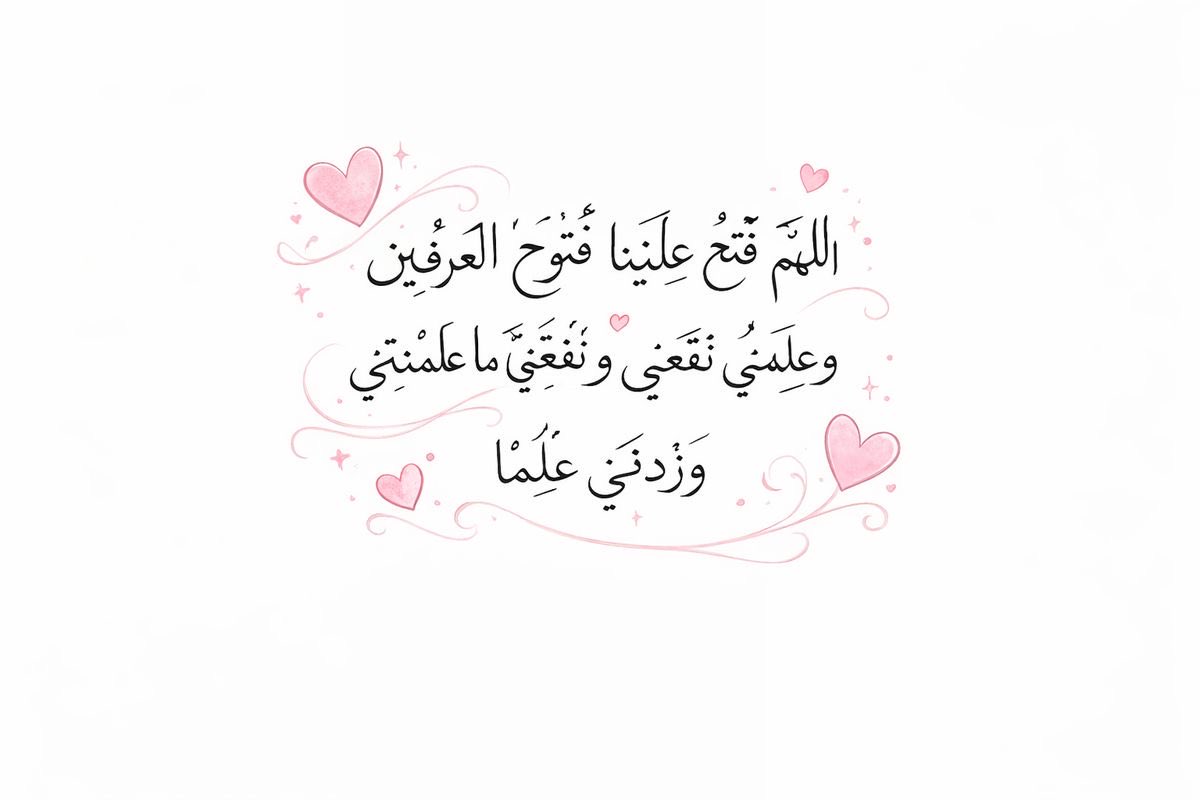 اللهمَّ فتحُ علينا فُتُوحَ العرفين
وعلِمَني نقعني ونفقعني ما علمْنتِني
وَزْدنَني عِلُمْا